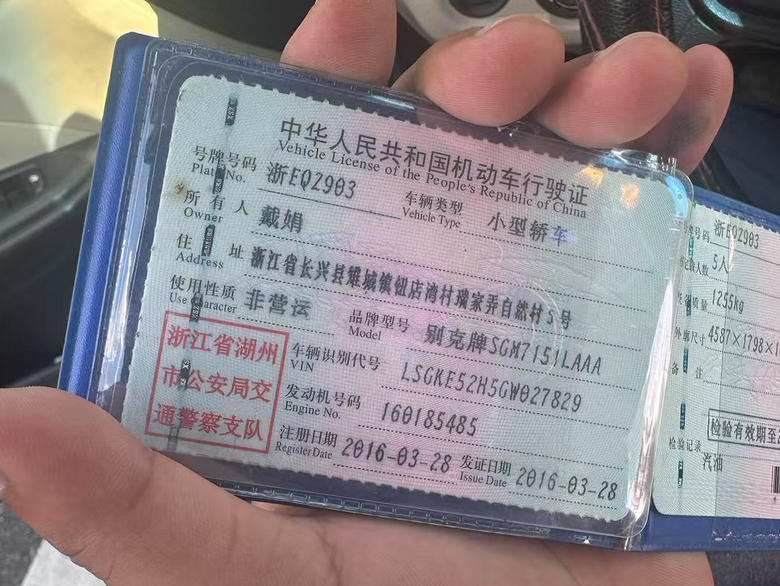 中华人民共和国机动车行驶证
Vehicle License of the People's Republic of China
号牌号码 浙EQZ903 车辆类型 小型轿车
Plate No. Vehicle Type
所有人 戴娟
Owner
住址 浙江省长兴县雉城镇钮店湾村瑞家弄自然村5号
Address
使用性质 非营运 品牌型号 别克牌SGM7151LAAA
Use Character Model
浙江省湖州
市公安局交
通警察支队
车辆识别代号 LSGKE52H5GW027829
VIN
发动机号码 160185485
Engine No.
注册日期 2016-03-28 发证日期 2016-03-28
Register Date Issue Date
号码 浙EQZ903
人数 5人
质量 1255kg
外廓尺寸 4587×1798×1
备注
检验有效期至2
检验记录
汽油